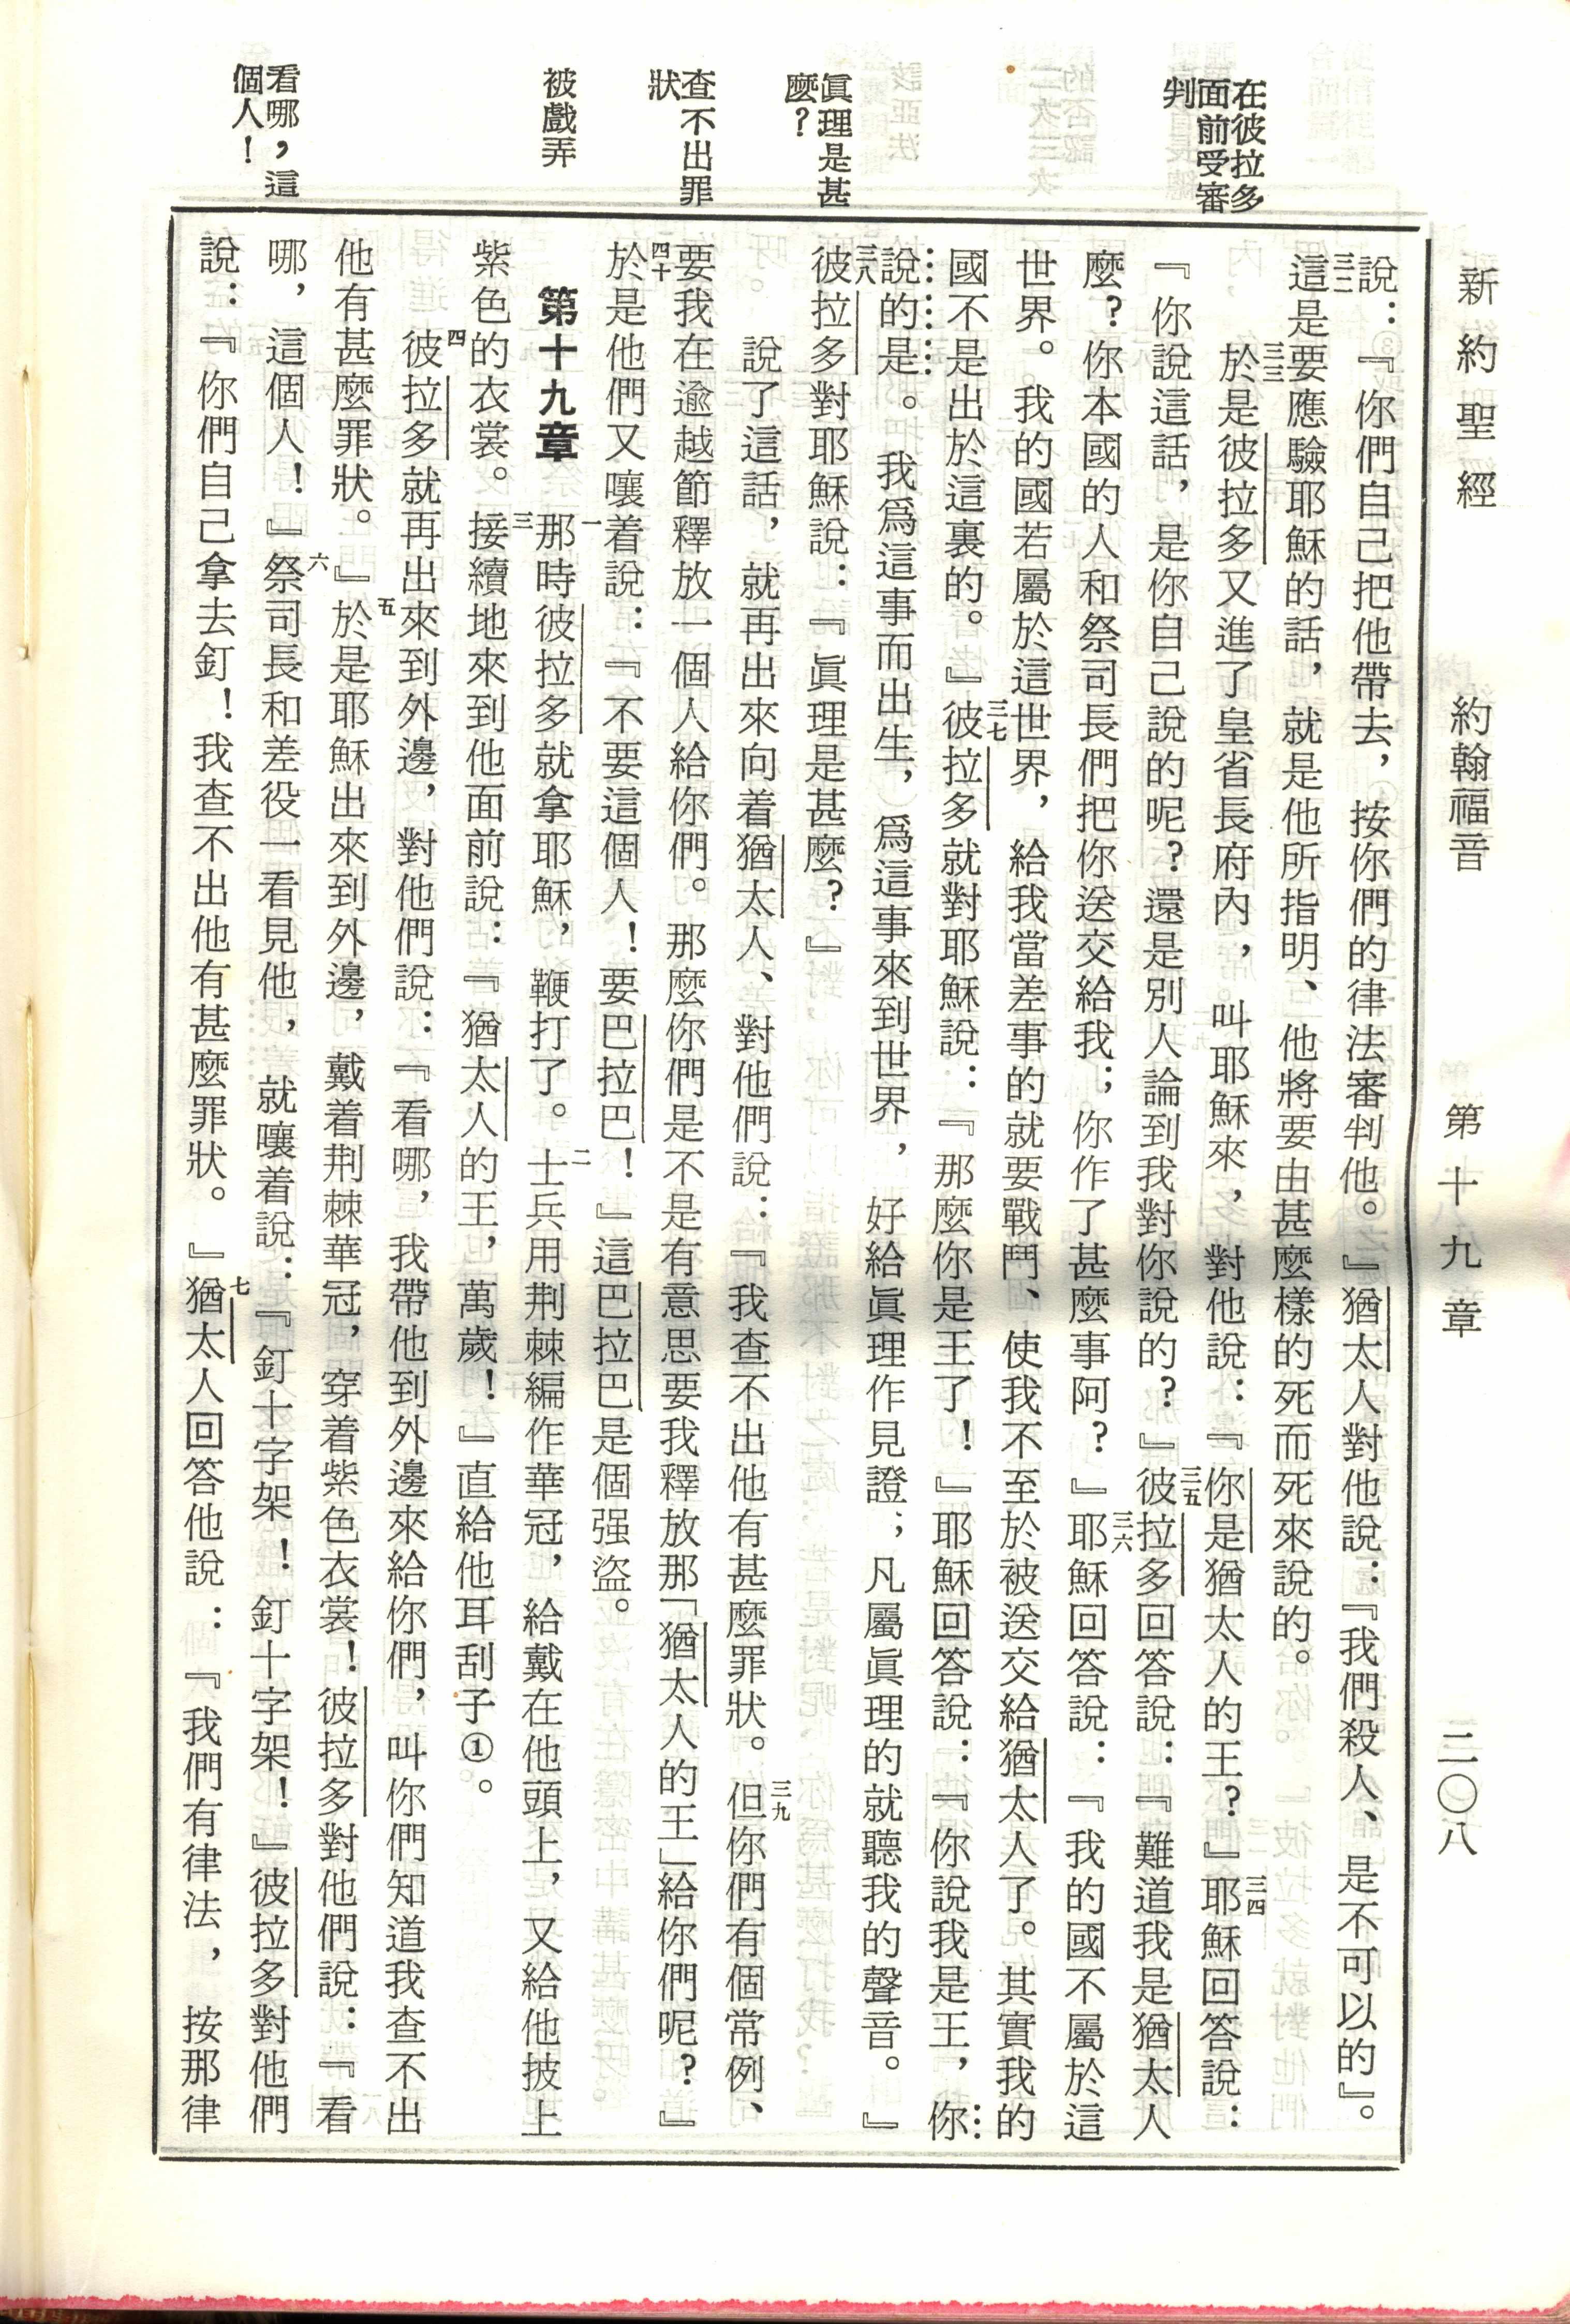 新約聖經　約翰福音　第十九章　二〇八
在彼拉多
面前受審
判
眞理是甚
麼？
查不出罪
狀
被戲弄
看哪，這
個人！
說：『你們自己把他帶去，按你們的律法審判他。』猶太人對他說：『我們殺人、是不可以的』。
三二這是要應驗耶穌的話，就是他所指明、他將要由甚麼樣的死而死來說的。
三三於是彼拉多又進了皇省長府內，叫耶穌來，對他說：『你是猶太人的王？』三四耶穌回答說：
『你說這話，是你自己說的呢？還是別人論到我對你說的？』三五彼拉多回答說：『難道我是猶太人
麼？你本國的人和祭司長們把你送交給我；你作了甚麼事阿？』三六耶穌回答說：『我的國不屬於這
世界。我的國若屬於這世界，給我當差事的就要戰鬥、使我不至於被送交給猶太人了。其實我的
國不是出於這裏的。』三七彼拉多就對耶穌說：『那麼你是王了！』耶穌回答說：『你說我是王，你
說的是。我爲這事而出生，爲這事來到世界，好給眞理作見證；凡屬眞理的就聽我的聲音。』
三八彼拉多對耶穌說：『眞理是甚麼？』
說了這話，就再出來向着猶太人、對他們說：『我查不出他有甚麼罪狀。三九但你們有個常例、
要我在逾越節釋放一個人給你們。那麼你們是不是有意思要我釋放那「猶太人的王」給你們呢？』
四十於是他們又嚷着說：『不要這個人！要巴拉巴！』這巴拉巴是個强盜。
第十九章　一那時彼拉多就拿耶穌，鞭打了。二士兵用荆棘編作華冠，給戴在他頭上，又給他披上
紫色的衣裳。三接續地來到他面前說：『猶太人的王，萬歲！』直給他耳刮子①。
四彼拉多就再出來到外邊，對他們說：『看哪，我帶他到外邊來給你們，叫你們知道我查不出
他有甚麼罪狀。』五於是耶穌出來到外邊，戴着荆棘華冠，穿着紫色衣裳！彼拉多對他們說：『看
哪，這個人！』六祭司長和差役一看見他，就嚷着說：『釘十字架！釘十字架！』彼拉多對他們
說：『你們自己拿去釘！我查不出他有甚麼罪狀。』七猶太人回答他說：『我們有律法，按那律